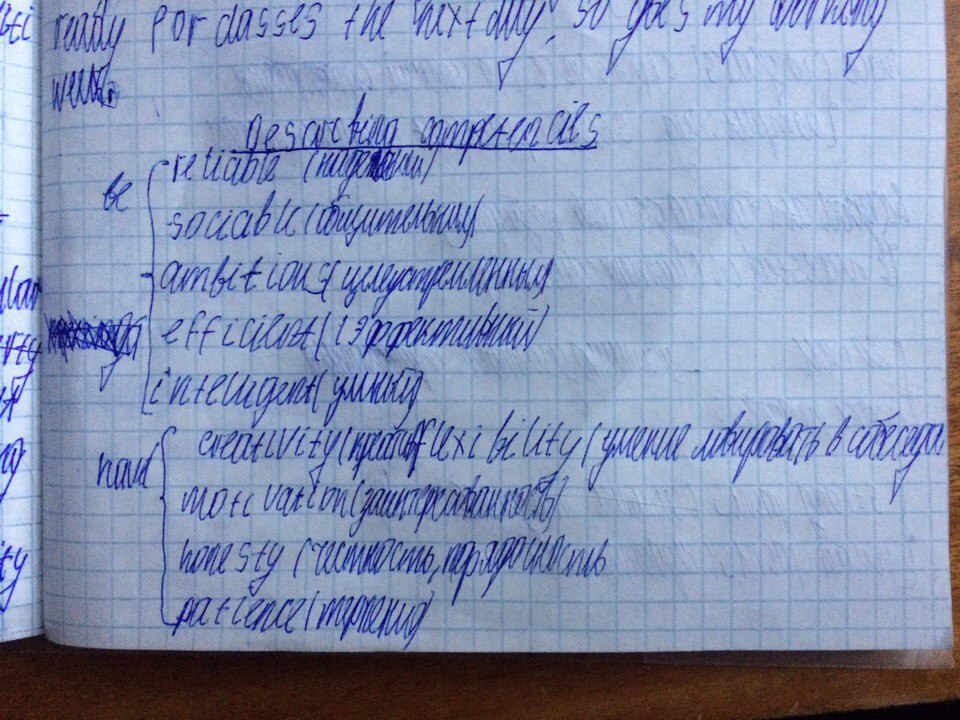 ready for classes the next day, so goes my working
week.
Describing competencies
be
reliable (надежный)
sociable (общительный)
ambitious (целеустремленный)
efficient (эффективный)
intelligent (умный)
have
creativity flexibility (умение лавировать в
motivation (заинтересованность)
honesty (честность, порядочность
patience (терпения)